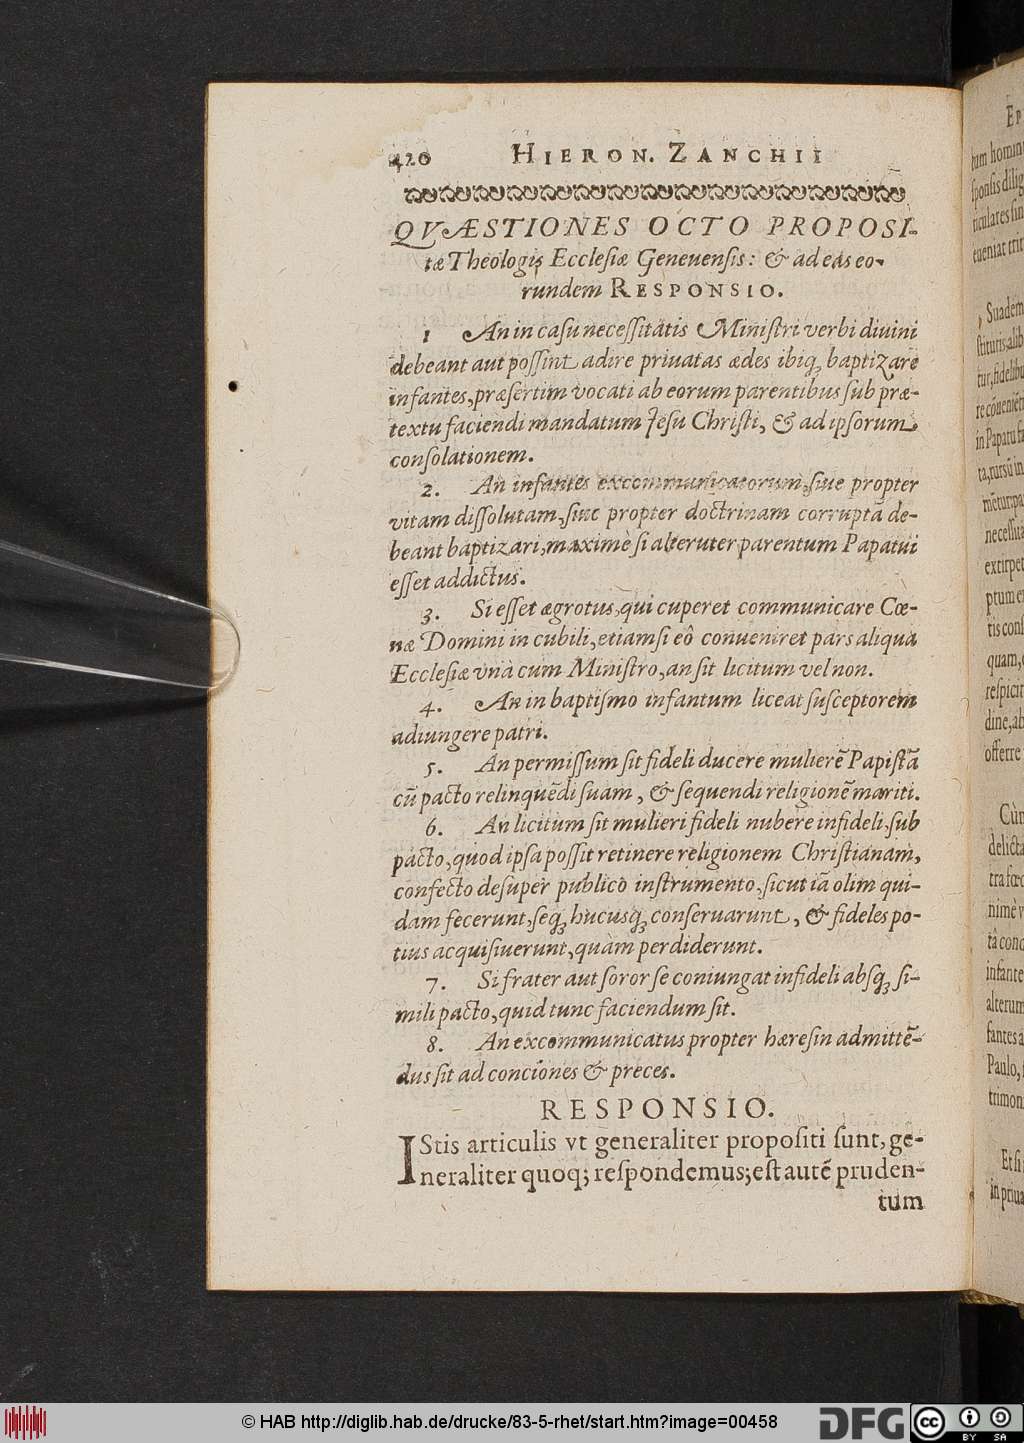 420 HIERON. ZANCHII
QVÆSTIONES OCTO PROPOSI-
tæ Theologis Ecclesiæ Geneuensis: & ad eas eo-
rundem RESPONSIO.
1 An in casu necessitatis Ministri verbi diuini
debeant aut possint adire priuatas ædes ibiq; baptizare
infantes, præsertim vocati ab eorum parentibus sub præ-
textu faciendi mandatum Jesu Christi, & ad ipsorum
consolationem.
2. An infantes excommunicatorum, siue propter
vitam dissolutam, siue propter doctrinam corruptã de-
beant baptizari, maximè si alteruter parentum Papatui
esset addictus.
3. Si esset ægrotus, qui cuperet communicare Cœ-
næ Domini in cubili, etiamsi eô conueniret pars aliqua
Ecclesiæ vnà cum Ministro, an sit licitum vel non.
4. An in baptismo infantum liceat susceptorem
adiungere patri.
5. An permissum sit fideli ducere mulierẽ Papistã
cũ pacto relinquẽdi suam, & sequendi religionẽ mariti.
6. An licitum sit mulieri fideli nubere infideli, sub
pacto, quod ipsa possit retinere religionem Christianam,
confecto desuper publico instrumento, sicut iã olim qui-
dam fecerunt, seq; hucusq; conseruarunt, & fideles po-
tius acquisiuerunt, quàm perdiderunt.
7. Si frater aut soror se coniungat infideli absq; si-
mili pacto, quid tunc faciendum sit.
8. An excommunicatus propter hæresin admittẽ-
dus sit ad conciones & preces.
RESPONSIO.
IStis articulis vt generaliter propositi sunt, ge-
neraliter quoq; respondemus; est autẽ pruden-
tum
Ep
tum homin
sponsis dilig
ticulares sin
eueniat trit
, Suadem
stitutis, alib
tur, fidelibu
re cõueniẽt
in Papatu fa
ta, rursũ in
mẽtur: pa
necessita
extirpet
ptum e
tis cons
quam,
respicit
dine, ab
offerre
Cùm
delicta
tra fœd
nimè v
tâ conc
infante
alterum
fantes a
Paulo,
trimon
Et si
in priua
© HAB http://diglib.hab.de/drucke/83-5-rhet/start.htm?image=00458
DFG
cc BY SA